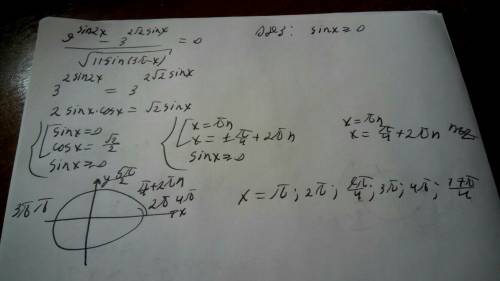 9^{sin2x} - 3^{2√2 sinx} / √(11 sin(3π-x)) = 0
ОДЗ: sinx ≥ 0
3^{2sin2x} = 3^{2√2 sinx}
2 sinx·cosx = √2 sinx
{ [ sinx=0
cosx = √2/2
sinx ≥ 0
{ [ x = πn
x = ± π/4 + 2πn
sinx ≥ 0
x = πn
x = π/4 + 2πn
y 5π/2
π/4 + 2πn
3π π
2π 4π
x
x = π; 2π; 9π/4; 3π; 4π; 17π/4